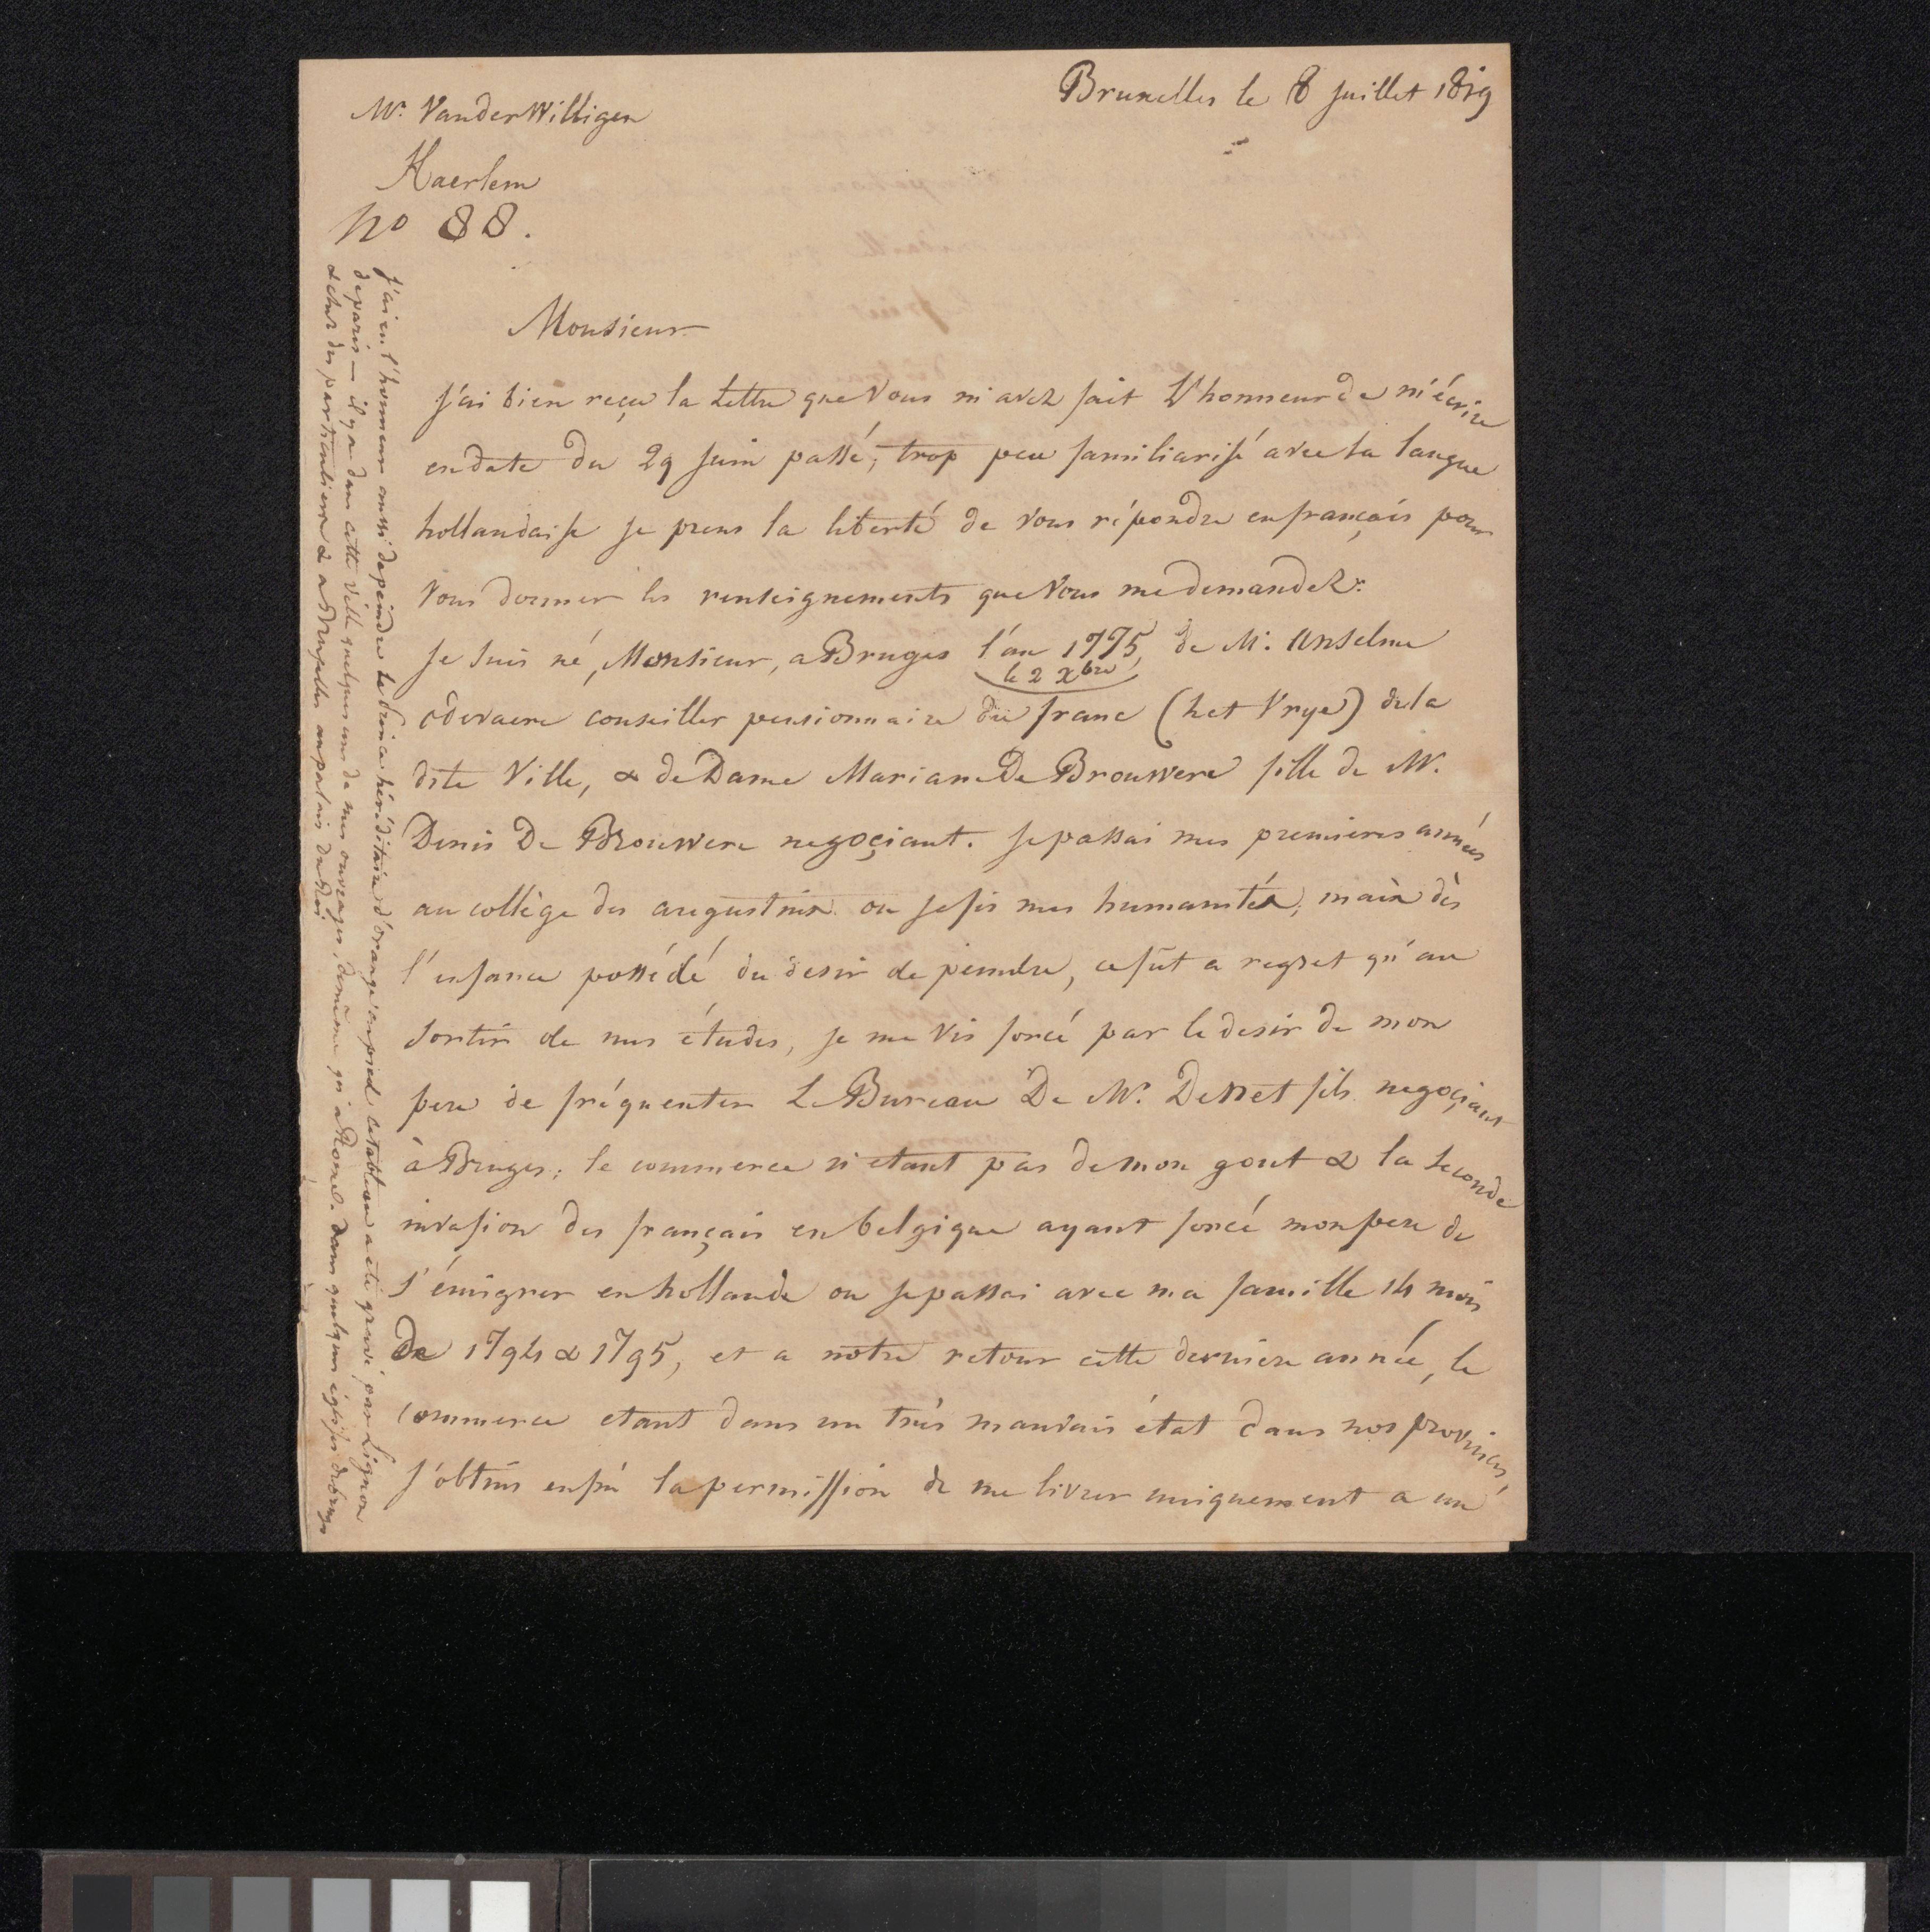 Bruxelles le 8 juillet 1819
Mr. VanderWilligen
Haerlem
no 88.
Monsieur
j'ai bien reçu la Lettre que vous m'avez fait L'honneur de m'écrire
en date du 29 juin passé; trop peu familiarisé avec la langue
hollandaise je prens la liberté de vous répondre en français pour
vous donner les renseignements que vous me demandez:
je suis né, Monsieur, a Bruges l'an 1775, de M. Anselme
le 2 Xbre
odevaere conseiller pensionnaire du franc (het Vrye) de la
dite Ville, & de Dame Marianne De Brouwere fille de Mr.
Denis De Brouwere negoçiant. je passai mes premieres années
au collège des augustins ou je fis mes humanités; mais dès
l'enfance possédé du desir de peindre, ce fût a regret qu'au
sortir de mes études, je me vis forcé par le desir de mon
pere de fréquenter Le Bureau De Mr. fils negoçiant
à Bruges; le commerce n'etant pas de mon gout & la seconde
invasion des français en belgique ayant forcé mon pere de
s'émigrer en hollande ou je passai avec ma famille 14 mois
De 1794 & 1795, et a notre retour cette derniere année, le
commerce etant dans un très mauvais état dans nos provinces,
j'obtins enfin la permission de me livrer uniquement a un
j'ai eu l'honneur aussi de peindre le prince héréditaire d'orange en pied, ce tableau a été gravé par Lignon
de paris — il y a dans cette ville quelques uns de mes ouvrages, de même qu'à Rome. dans quelques églises de bruges
& chez des particuliers & a Bruxelles au palais du Roi